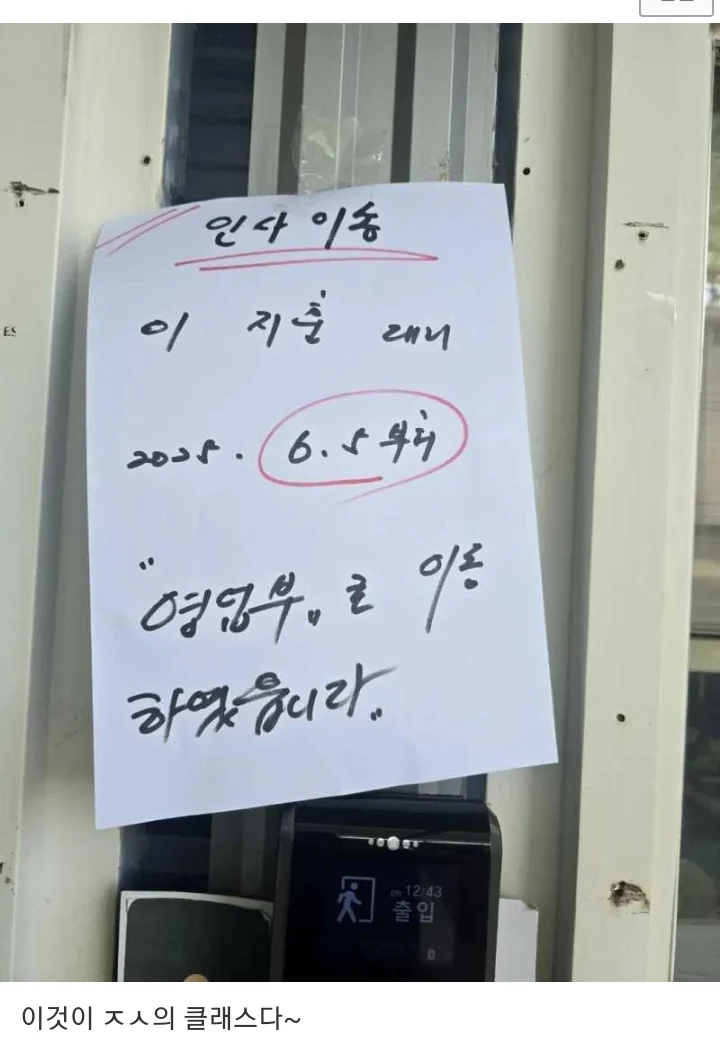 인사이동
이 지훈 대리
2025. 6.5부터
"영업부"로 이동
하였읍니다"
ES
pm 12:43
출입
이것이 ㅈㅅ의 클래스다~